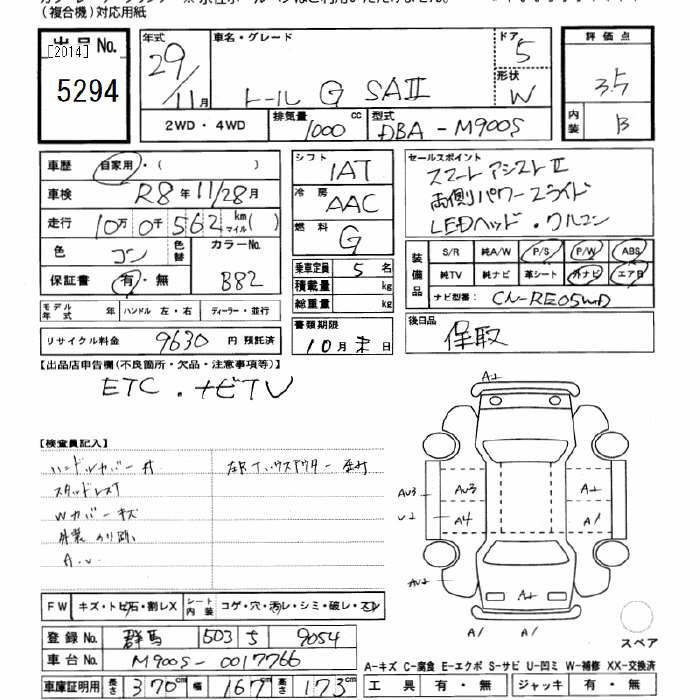 (複合機)対応用紙
出品No.
[2014]
5294
年式 29 / 11月
車名・グレード
トール G SAⅡ
ドア 5
形状 W
2WD・4WD
排気量 1000 cc
型式 DBA-M900S
評価点
3.5
内装 B
車歴 自家用・( )
車検 R8年11/28月
走行 10万0千562 km マイル( )
色 コン
色替
カラーNo. B82
保証書 有・無
モデル年式 年 ハンドル 左・右 ディーラー・並行
リサイクル料金 9630 円 預託済
シフト 1AT
冷房 AAC
燃料 G
乗車定員 5 名
積載量 kg
総重量 kg
書類期限
10月末日
セールスポイント
スマートアシストⅡ
両側パワースライド
LEDヘッド・クルコン
装備品
S/R 純A/W P/S P/W ABS
純TV 純ナビ 革シート 外ナビ エアB
ナビ型番: CN-RE05WD
後日品
保取
【出品店申告欄(不良箇所・欠品・注意事項等)】
ETC・ナビTV
【検査員記入】
ハンドルカバー付
スタッドレス
Wカバーキズ
外装
A.U
FW キズ・トビ石・割レX
シート内装 コゲ・穴・汚レ・シミ・破レ・スレ
登録No. 群馬 503 9054
車台No. M900S-0017766
車庫証明用 長さ 370cm 幅 167cm 高さ 173cm
A+
AU3
AU3
U2
A4
A+
A1
AU2
A+
A1
A1
スペア
A-キズ C-腐食 E-エクボ S-サビ U-凹ミ W-補修 XX-交換済
工具 有・無 ジャッキ 有・無